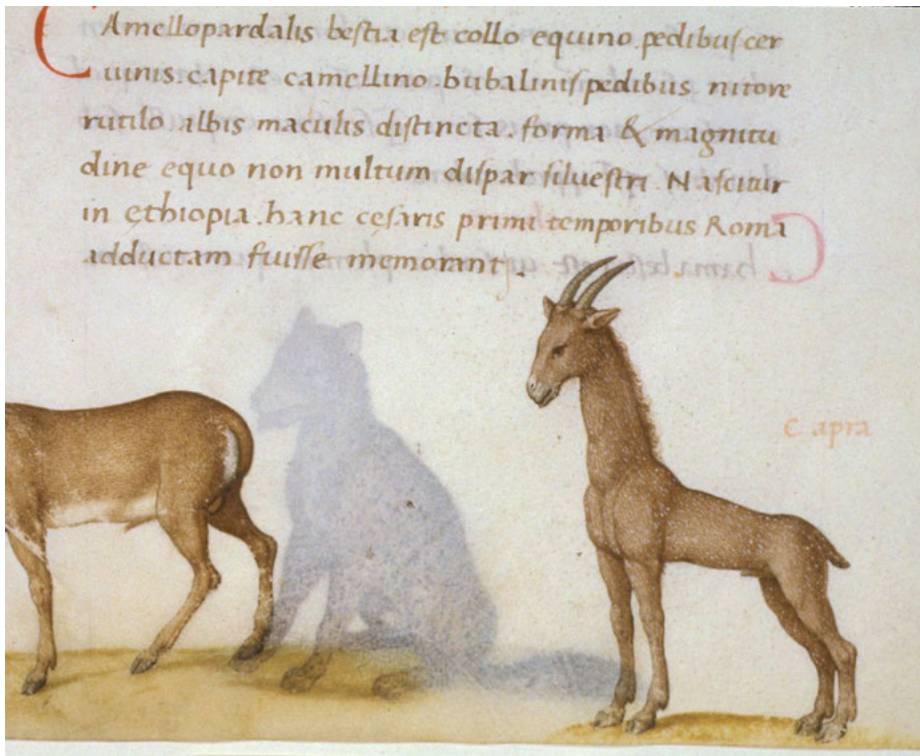 Camellopardalis bestia est collo equino.pedibus cer
uinis.capite camellino.bubalinis pedibus nitore
rutilo albis maculis distincta.forma & magnitu
dine equo non multum dispar siluestri.Nascitur
in ęthiopia.hanc cęsaris primi temporibus Roma
adductam fuisse memorant.
Capra